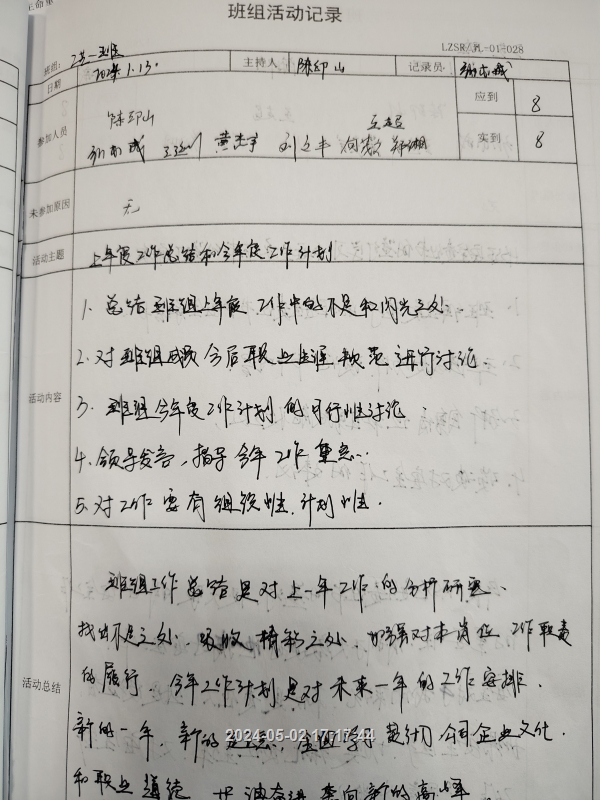 班组活动记录
LZSR/JL-01-028
班组: 2#一班
日期 2024.1.13. 主持人 陈印山 记录员
参加人员 陈印山 应到 8
王超
黄杰宇 刘立丰 郑湘 实到 8
未参加原因 无
活动主题 上年度工作总结和今年度工作计划
活动内容
1. 总结班组上年度工作中的不足和闪光之处
2. 对班组成员今后职业生涯规范进行讨论.
3. 班组今年度工作计划的可行性讨论.
4. 领导发言,指导今年工作重点..
5. 对工作要有组织性.计划性.
活动总结
班组工作总结是对上一年工作的分析研究、
找出不足之处.吸收精彩之处.加强对本岗位工作职责
的履行.今年工作计划是对未来一年的工作安排.
新的一年,新的 全面学习 公司企业文化.
和职业道德 奔向新的高峰
2024-05-02 17:17:44